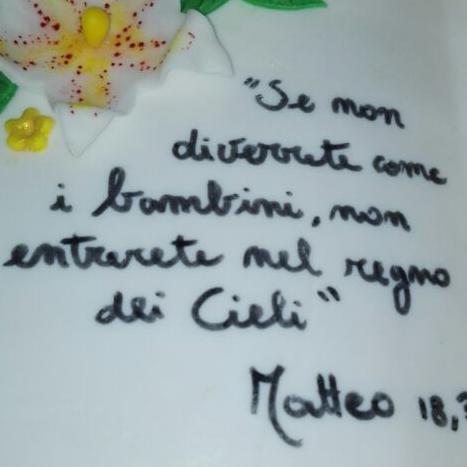 "Se non
diverrete come
i bambini, non
entrerete nel regno
dei Cieli"
Matteo 18,